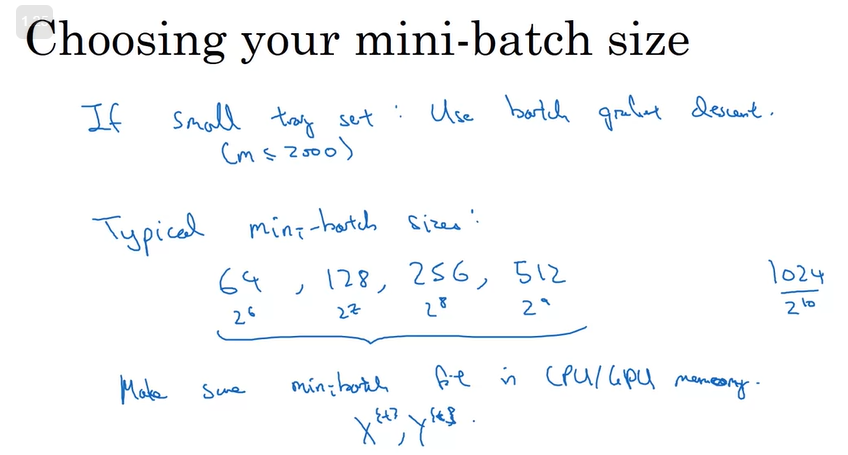 Choosing your mini-batch size
If small trag set : Use batch gradient descent.
(m ≤ 2000)
Typical mini-batch sizes:
64, 128, 256, 512 1024
2^6 2^7 2^8 2^9 2^10
Make sure mini-batch fit in CPU/GPU memory.
X^{t}, Y^{t}.